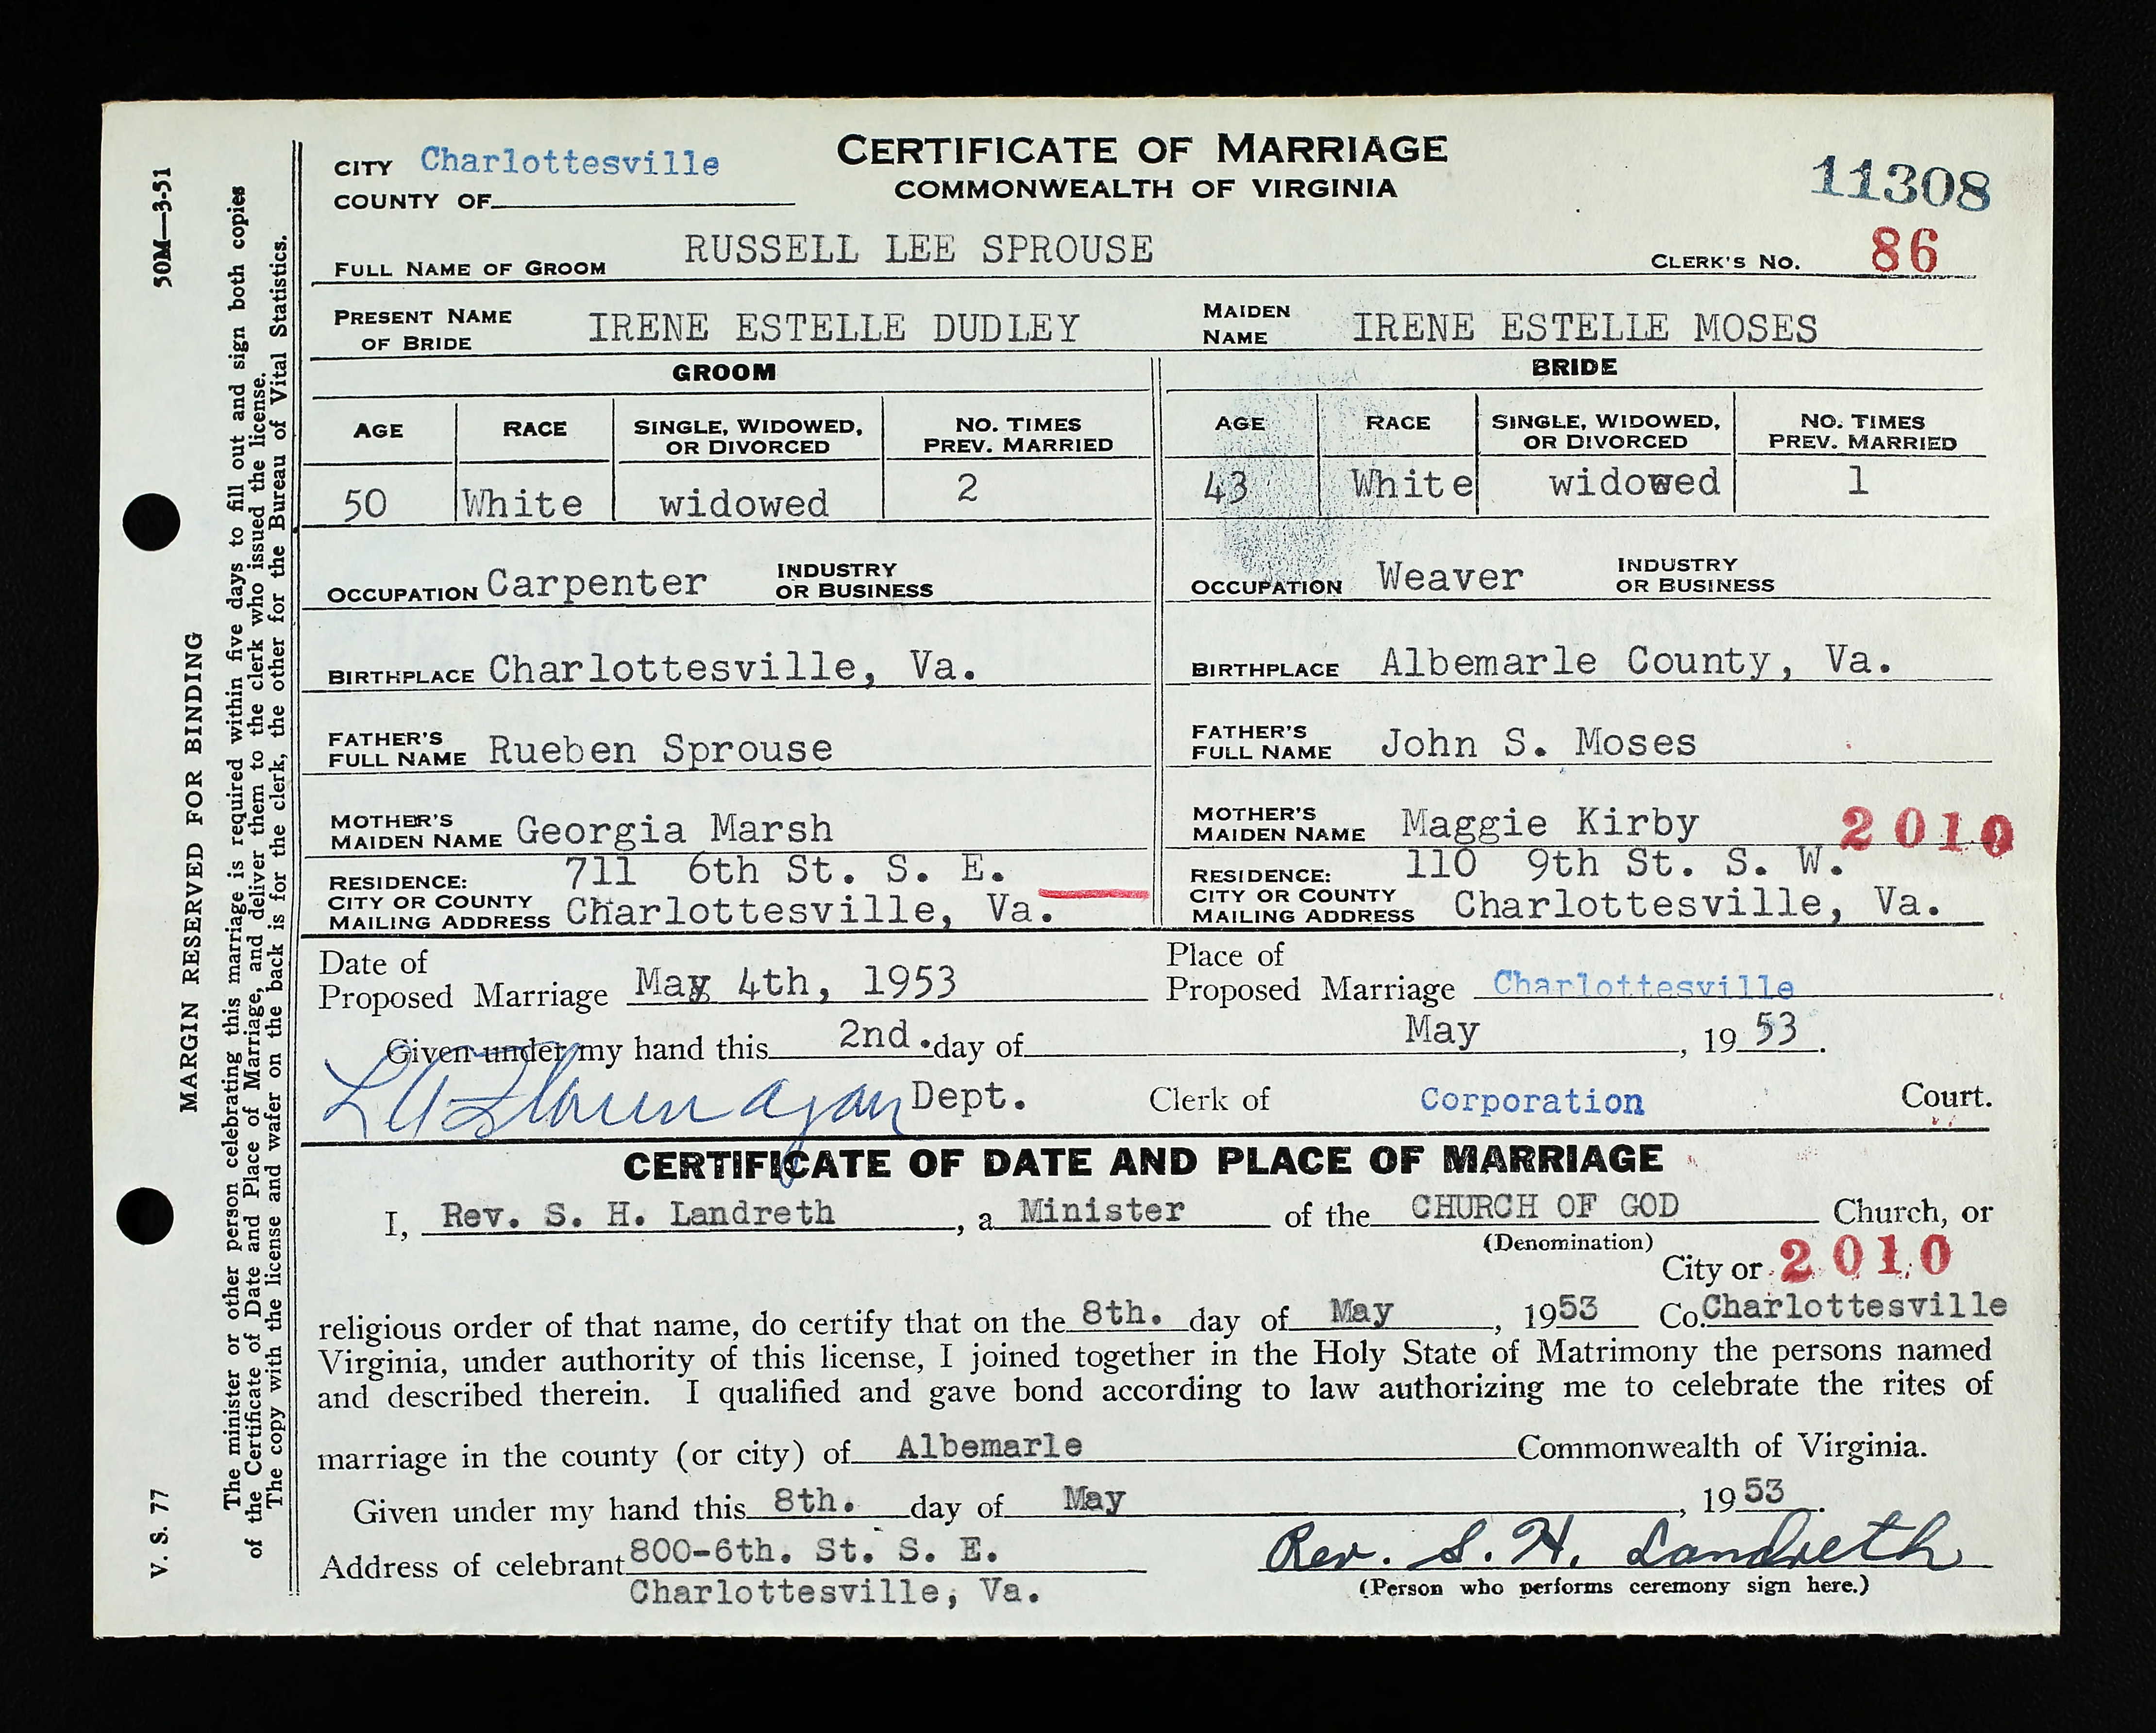 CERTIFICATE OF MARRIAGE
COMMONWEALTH OF VIRGINIA
CITY Charlottesville
COUNTY OF
11308
FULL NAME OF GROOM RUSSELL LEE SPROUSE CLERK'S NO. 86
PRESENT NAME OF BRIDE IRENE ESTELLE DUDLEY MAIDEN NAME IRENE ESTELLE MOSES
GROOM
AGE RACE SINGLE, WIDOWED, OR DIVORCED NO. TIMES PREV. MARRIED
50 White widowed 2
OCCUPATION Carpenter INDUSTRY OR BUSINESS
BIRTHPLACE Charlottesville, Va.
FATHER'S FULL NAME Rueben Sprouse
MOTHER'S MAIDEN NAME Georgia Marsh
RESIDENCE: 711 6th St. S. E.
CITY OR COUNTY
MAILING ADDRESS Charlottesville, Va.
BRIDE
AGE RACE SINGLE, WIDOWED, OR DIVORCED NO. TIMES PREV. MARRIED
43 White widowed 1
OCCUPATION Weaver INDUSTRY OR BUSINESS
BIRTHPLACE Albemarle County, Va.
FATHER'S FULL NAME John S. Moses
MOTHER'S MAIDEN NAME Maggie Kirby 2010
RESIDENCE: 110 9th St. S. W.
CITY OR COUNTY
MAILING ADDRESS Charlottesville, Va.
Date of Proposed Marriage May 4th, 1953 Place of Proposed Marriage Charlottesville
Given under my hand this 2nd. day of May, 1953.
Dept. Clerk of Corporation Court.
CERTIFICATE OF DATE AND PLACE OF MARRIAGE
I, Rev. S. H. Landreth, a Minister of the CHURCH OF GOD Church, or
(Denomination)
City or 2010
religious order of that name, do certify that on the 8th. day of May, 1953 Co. Charlottesville
Virginia, under authority of this license, I joined together in the Holy State of Matrimony the persons named
and described therein. I qualified and gave bond according to law authorizing me to celebrate the rites of
marriage in the county (or city) of Albemarle Commonwealth of Virginia.
Given under my hand this 8th. day of May, 1953.
Address of celebrant 800-6th. St. S. E. Rev. S. H. Landreth
Charlottesville, Va. (Person who performs ceremony sign here.)
V. S. 77 MARGIN RESERVED FOR BINDING 50M—3-51
The minister or other person celebrating this marriage is required within five days to fill out and sign both copies
of the Certificate of Date and Place of Marriage, and deliver them to the clerk who issued the license.
The copy with the license and wafer on the back is for the clerk, the other for the Bureau of Vital Statistics.